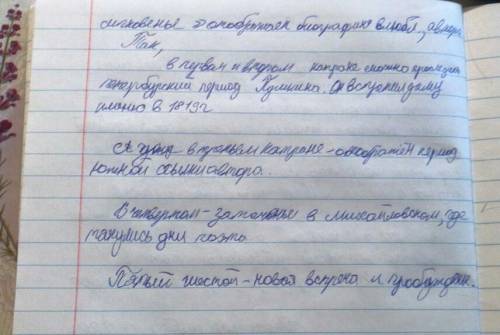 мгновенье отображен биографию влюбл, автора
Так,
в первом и втором катране можно проследить
петербургский период Пушкина. Он вступил даму
имено в 1819г
А уже в третьем катране - отображён период
южной ссылки автора.
В четвертом - заточенье в михайловском, где
тянулись дни поэта
Пятый шестой - новая встреча и пробужден.